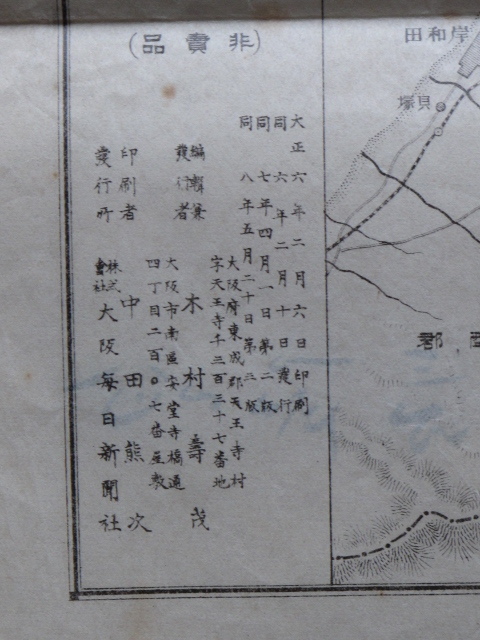 (非賣品)
大正六年二月六日印刷
同六年二月十日發行
同七年四月一日第二版
同八年五月二十日第三版
大阪府東成郡天王寺村
字天王寺千三百三十七番地
編輯兼
發行者 木村壽茂
大阪市南區安堂寺橋通
四丁目二百〇七番屋敷
印刷者 中田熊次
發行所 株式會社 大阪每日新聞社
岸和田
貝塚
郡